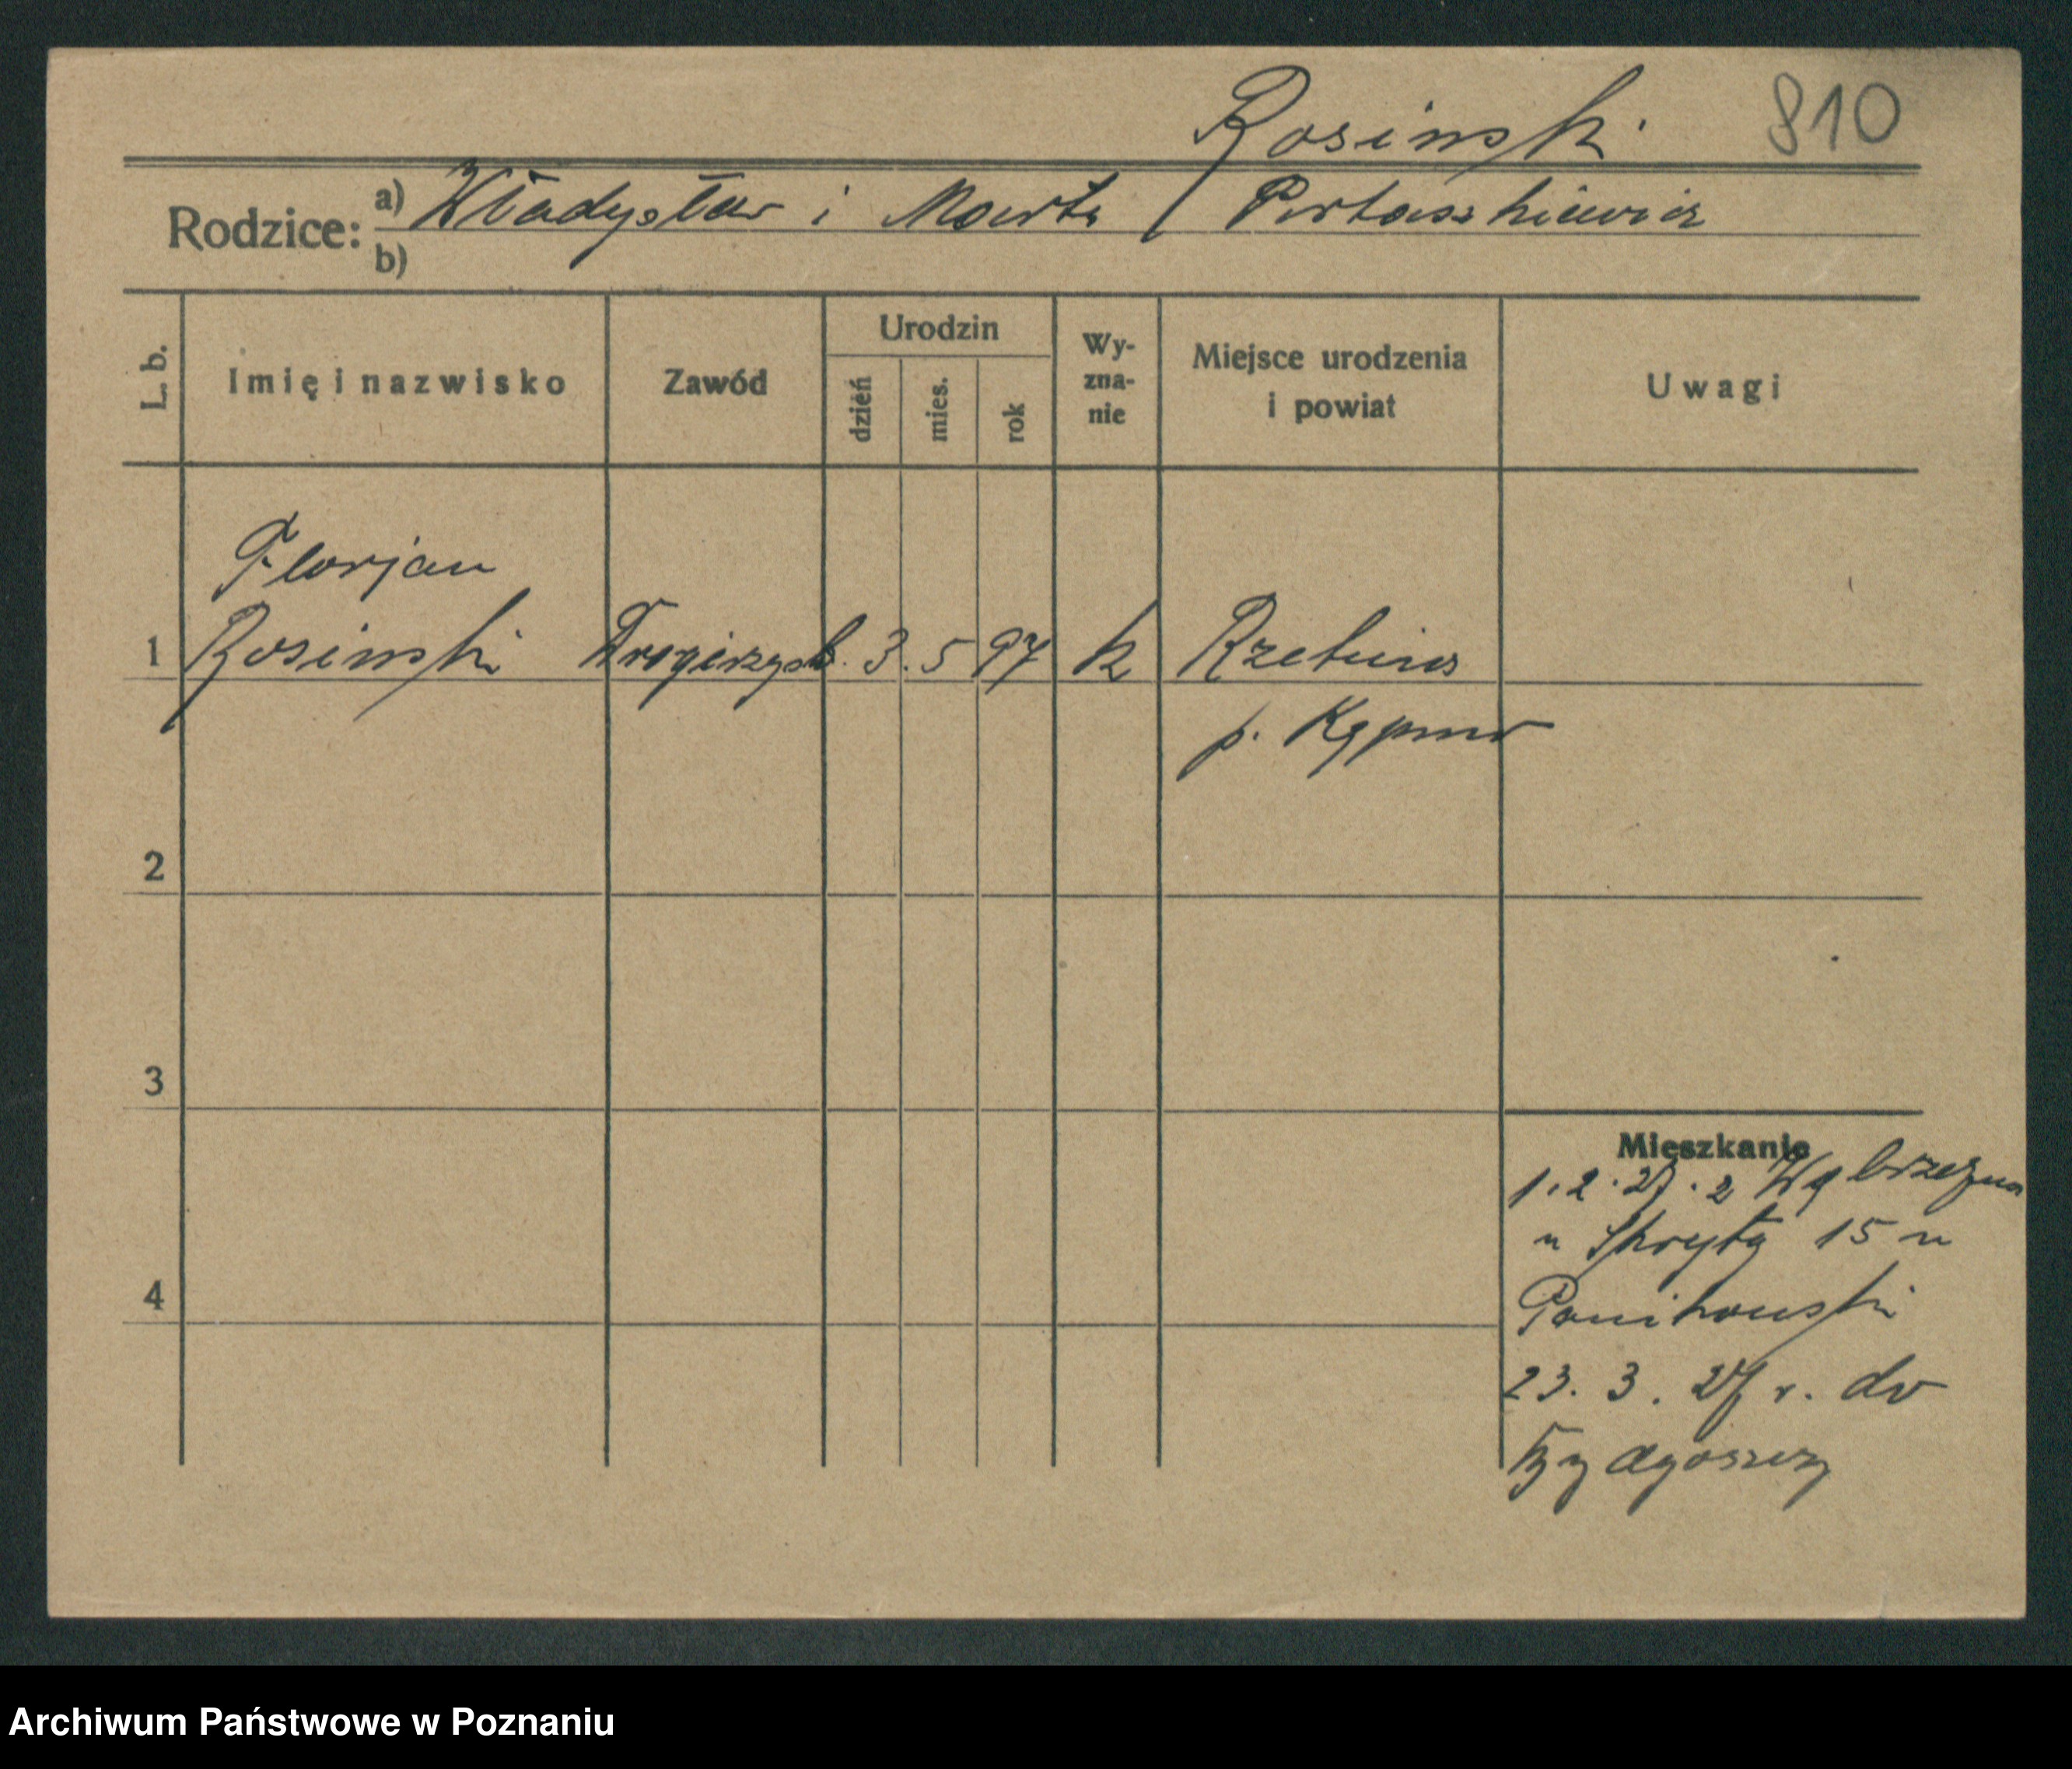 Rosinski
810
Rodzice: a) Władysław i Marta / Portaszkiewicz
b)
L. b. Imię i nazwisko Zawód Urodzin dzień mies. rok Wy-zna-nie Miejsce urodzenia i powiat Uwagi
Florjan
1 Rosinski 3. 5 97 k
p. Kępno
2
3
4
Mieszkanie
1. 2. 27. z Wąbrzezna
u Skryta 15 u
Ponikowski
23. 3. 27 r. do
Bydgoszczy
Archiwum Państwowe w Poznaniu